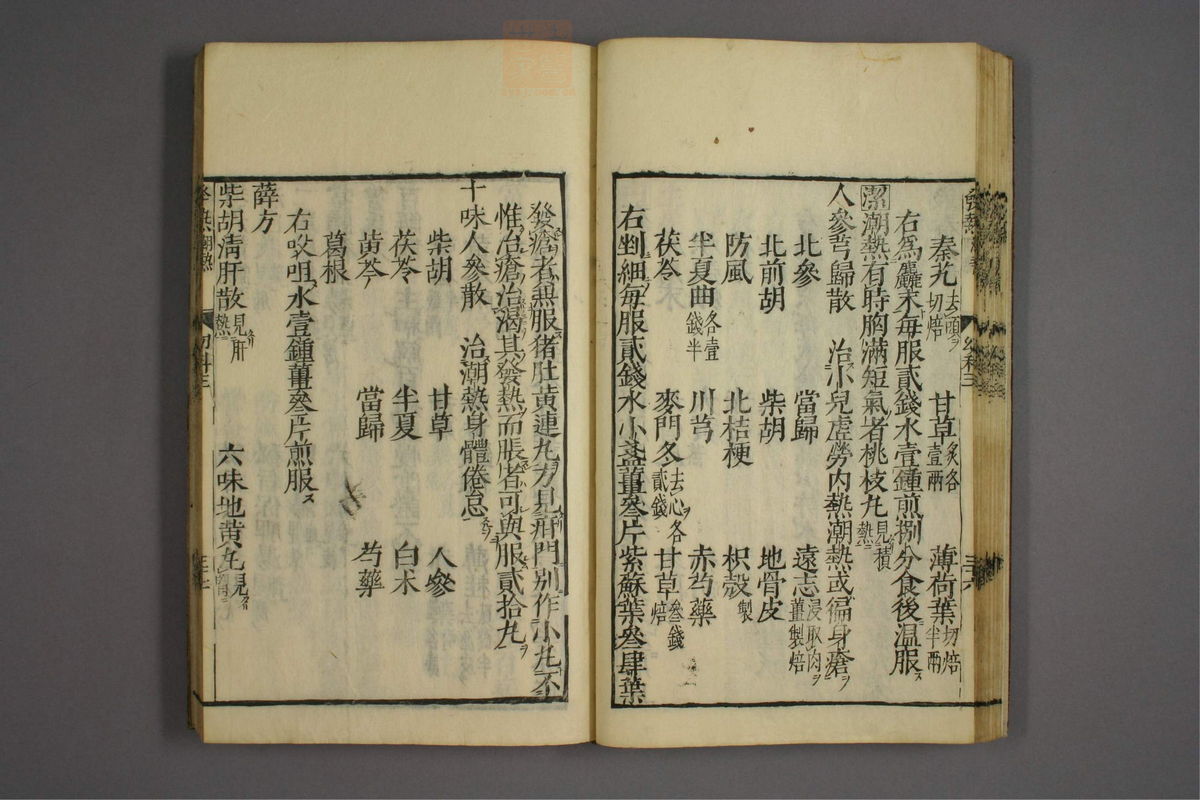 秦艽去頭切焙 甘草炙各壹兩 薄荷葉切焙半兩
右為麤末每服貳錢水壹鍾煎捌分食後温服ス
潔潮熱有時胸滿短氣者桃枝丸見積熱
人參芎歸散 治小兒虛勞内熱潮熱或徧身瘡
北參 當歸 遠志浸取肉薑製焙
北前胡 柴胡 地骨皮
防風 北桔梗 枳殼製
半夏曲各壹錢半 川芎 赤芍藥
茯苓 麥門冬去心各貳錢 甘草叄錢焙
右剉細每服貳錢水小盞薑叄片紫蘇葉叄肆葉
發瘡者無服猪肚黄連丸方見疳門别作小丸不
惟治瘡治渴其發熱而脹者可與服貳拾丸
十味人參散 治潮熱身體倦怠
柴胡 甘草 人參
茯苓 半夏 白朮
黄芩 當歸 芍藥
葛根
右㕮咀水壹鍾薑叄片煎服ス
薛方
柴胡清肝散見肝熱 六味地黄丸見腎